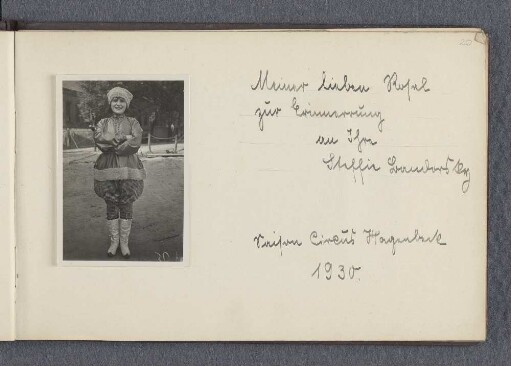 Meiner lieben Rosel
zur Erinnerung
an Ihre
Steffie
Saison Circus Hagenbeck
1930.